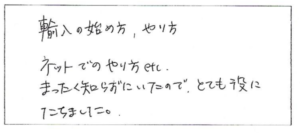 輸入の始め方，やり方
ネットでのやり方etc.
まったく知らずにいたので，とても役に
たちました。